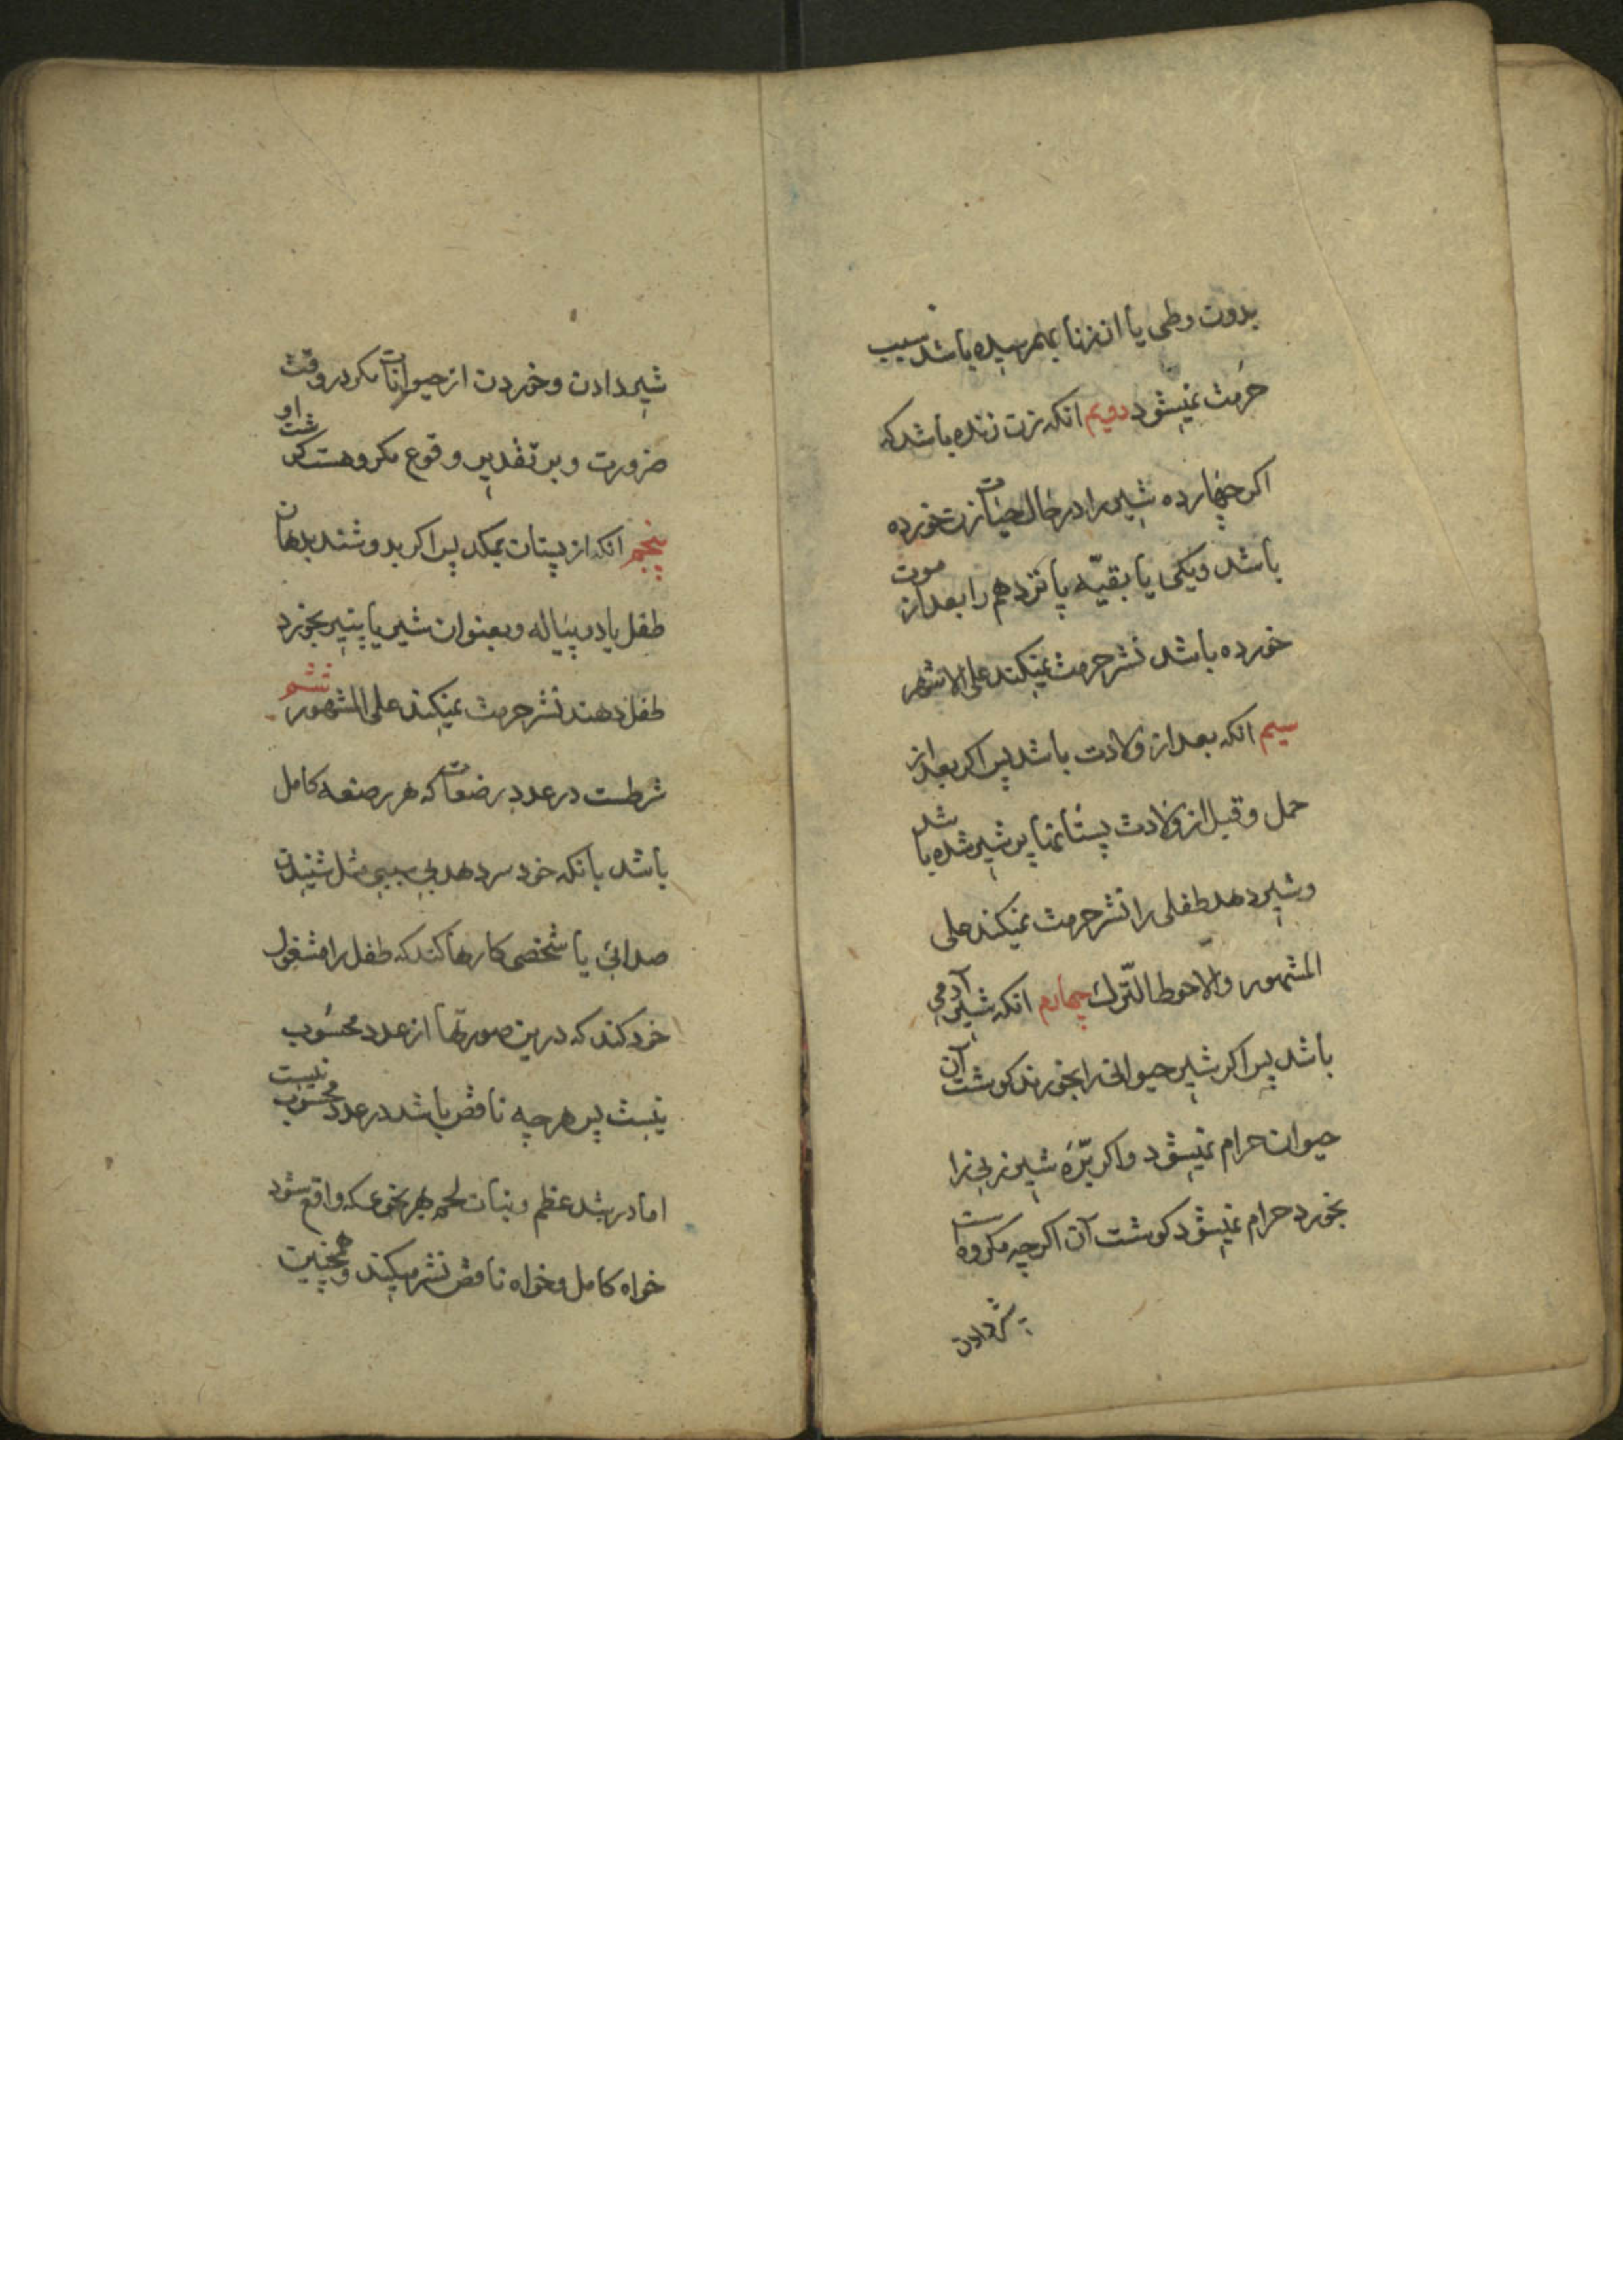 بدون وطی یا از زنا بهم رسیده باشد سبب
حرمت نمیشود دویم انکه زن زنده باشد که
اکر چهارده شیر را در حال حیات زن خورده
باشد ویکی یا بقیّه پانزدهم را بعد از موت
خورده باشد نشر حرمت نمیکند علی الاشهر
سیم انکه بعد از ولادت باشد پس اکر بعد از
حمل و قبل از ولادت پستانها پر شیر شده باشد
وشیر دهد طفلی را نشر حرمت نمیکند علی
المشهور والاحوط الترک چهارم انکه شیر آدمی
باشد پس اکر شیر حیوانی را بخورند کوشت آن
حیوان حرام نمیشود واکر برّه شیر زنی را
بخورد حرام نمیشود کوشت آن اکرچه مکروه است
شیر دادن
شیر دادن و خوردن از حیوانات مکر در وقت
ضرورت و بر تقدیر وقوع مکروهست کوشت او
پنجم انکه از پستان بمکد پس اکر بدوشند بدهان
طفل یا در پیاله وبعنوان شیر یا پنیر بخورد
طفل دهند نشر حرمت نمیکند علی المشهور ششم
شرطست در عدد رضعات که هر رضعه کامل
باشد بانکه خود سر دهد بی سببی مثل شنیدن
صدائی یا شخصی کارها کند که طفل را مشغول
خود کند که درین صورتها از عدد محسوب
نیست پس هرچه ناقص باشد در عدد محسوب نیست
اما در شد عظم و نبات لحم بهر نحوی که واقع شود
خواه کامل وخواه ناقص نشر میکند وهمچنین